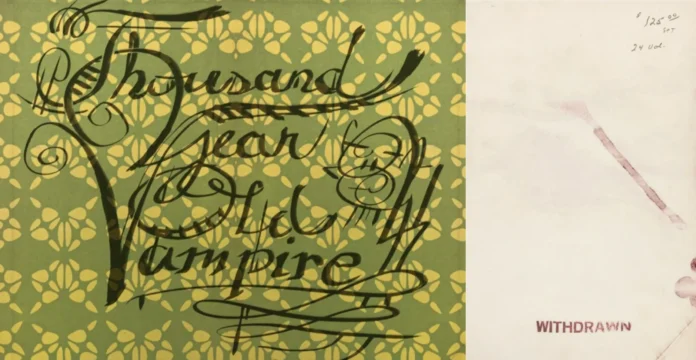 Thousand
Year
Old
Vampire
$25.00
SET
24 Vol.
WITHDRAWN